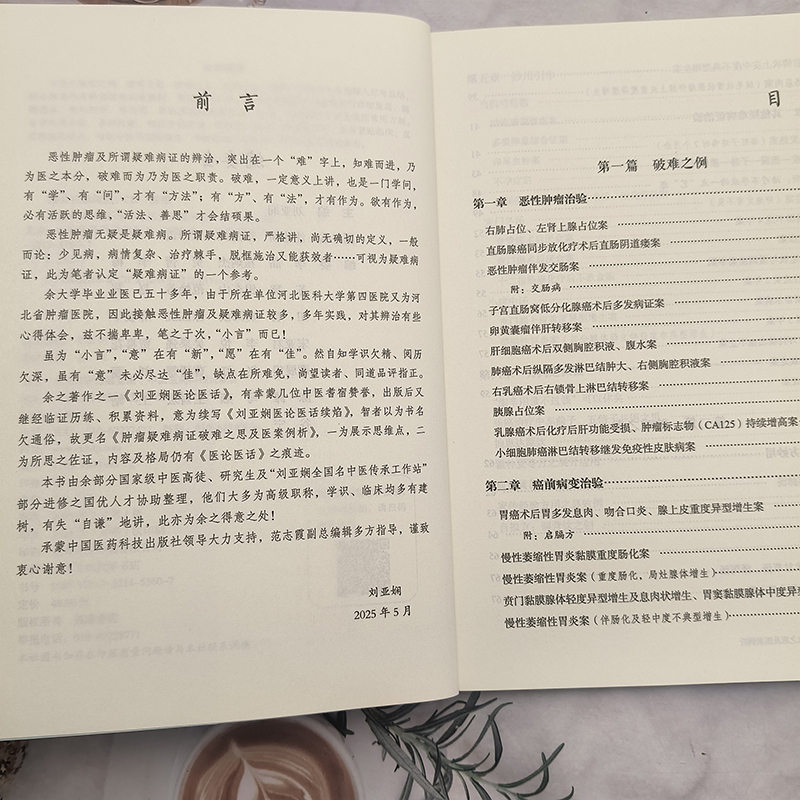 前 言
恶性肿瘤及所谓疑难病证的辨治，突出在一个“难”字上，知难而进，乃
为医之本分，破难而为乃为医之职责。破难，一定意义上讲，也是一门学问，
有“学”、有“问”，才有“方法”；有“方”、有“法”，才有作为。欲有作为，
必有活跃的思维，“活法、善思”才会结硕果。
恶性肿瘤无疑是疑难病。所谓疑难病证，严格讲，尚无确切的定义，一般
而论：少见病，病情复杂、治疗棘手，脱框施治又能获效者……可视为疑难病
证，此为笔者认定“疑难病证”的一个参考。
余大学毕业业医已五十多年，由于所在单位河北医科大学第四医院又为河
北省肿瘤医院，因此接触恶性肿瘤及疑难病证较多，多年实践，对其辨治有些
心得体会，兹不揣卑卑，笔之于次，“小言”而已！
虽为“小言”，“意”在有“新”，“愿”在有“佳”。然自知学识欠精、阅历
欠深，虽有“意”未必尽达“佳”，缺点在所难免，尚望读者、同道品评指正。
余之著作之一《刘亚娴医论医话》，有幸蒙几位中医耆宿赞誉，出版后又
继经临证历练、积累资料，意为续写《刘亚娴医论医话续焰》，智者以为书名
欠通俗，故更名《肿瘤疑难病证破难之思及医案例析》，一为展示思维点，二
为所思之佐证，内容及格局仍有《医论医话》之痕迹。
本书由余部分国家级中医高徒、研究生及“刘亚娴全国名中医传承工作站”
部分进修之国优人才协助整理，他们大多为高级职称，学识、临床均多有建
树，有失“自谦”地讲，此亦为余之得意之处！
承蒙中国医药科技出版社领导大力支持，范志霞副总编辑多方指导，谨致
衷心谢意！
刘亚娴
2025 年 5 月
目
第一篇 破难之例
第一章 恶性肿瘤治验
右肺占位、左肾上腺占位案
直肠腺癌同步放化疗术后直肠阴道瘘案
恶性肿瘤伴发交肠案
附：交肠病
子宫直肠窝低分化腺癌术后多发病证案
卵黄囊瘤伴肝转移案
肝细胞癌术后双侧胸腔积液、腹水案
肺癌术后纵隔多发淋巴结肿大、右侧胸腔积液案
右乳癌术后右锁骨上淋巴结转移案
胰腺占位案
乳腺癌术后化疗后肝功能受损、肿瘤标志物（CA125）持续增高案
小细胞肺癌淋巴结转移继发免疫性皮肤病案
第二章 癌前病变治验
胃癌术后胃多发息肉、吻合口炎、腺上皮重度异型增生案
附：启膈方
慢性萎缩性胃炎黏膜重度肠化案
慢性萎缩性胃炎案（重度肠化，局灶腺体增生）
贲门黏膜腺体轻度异型增生及息肉状增生、胃窦黏膜腺体中度异型
慢性萎缩性胃炎案（伴肠化及轻中度不典型增生）